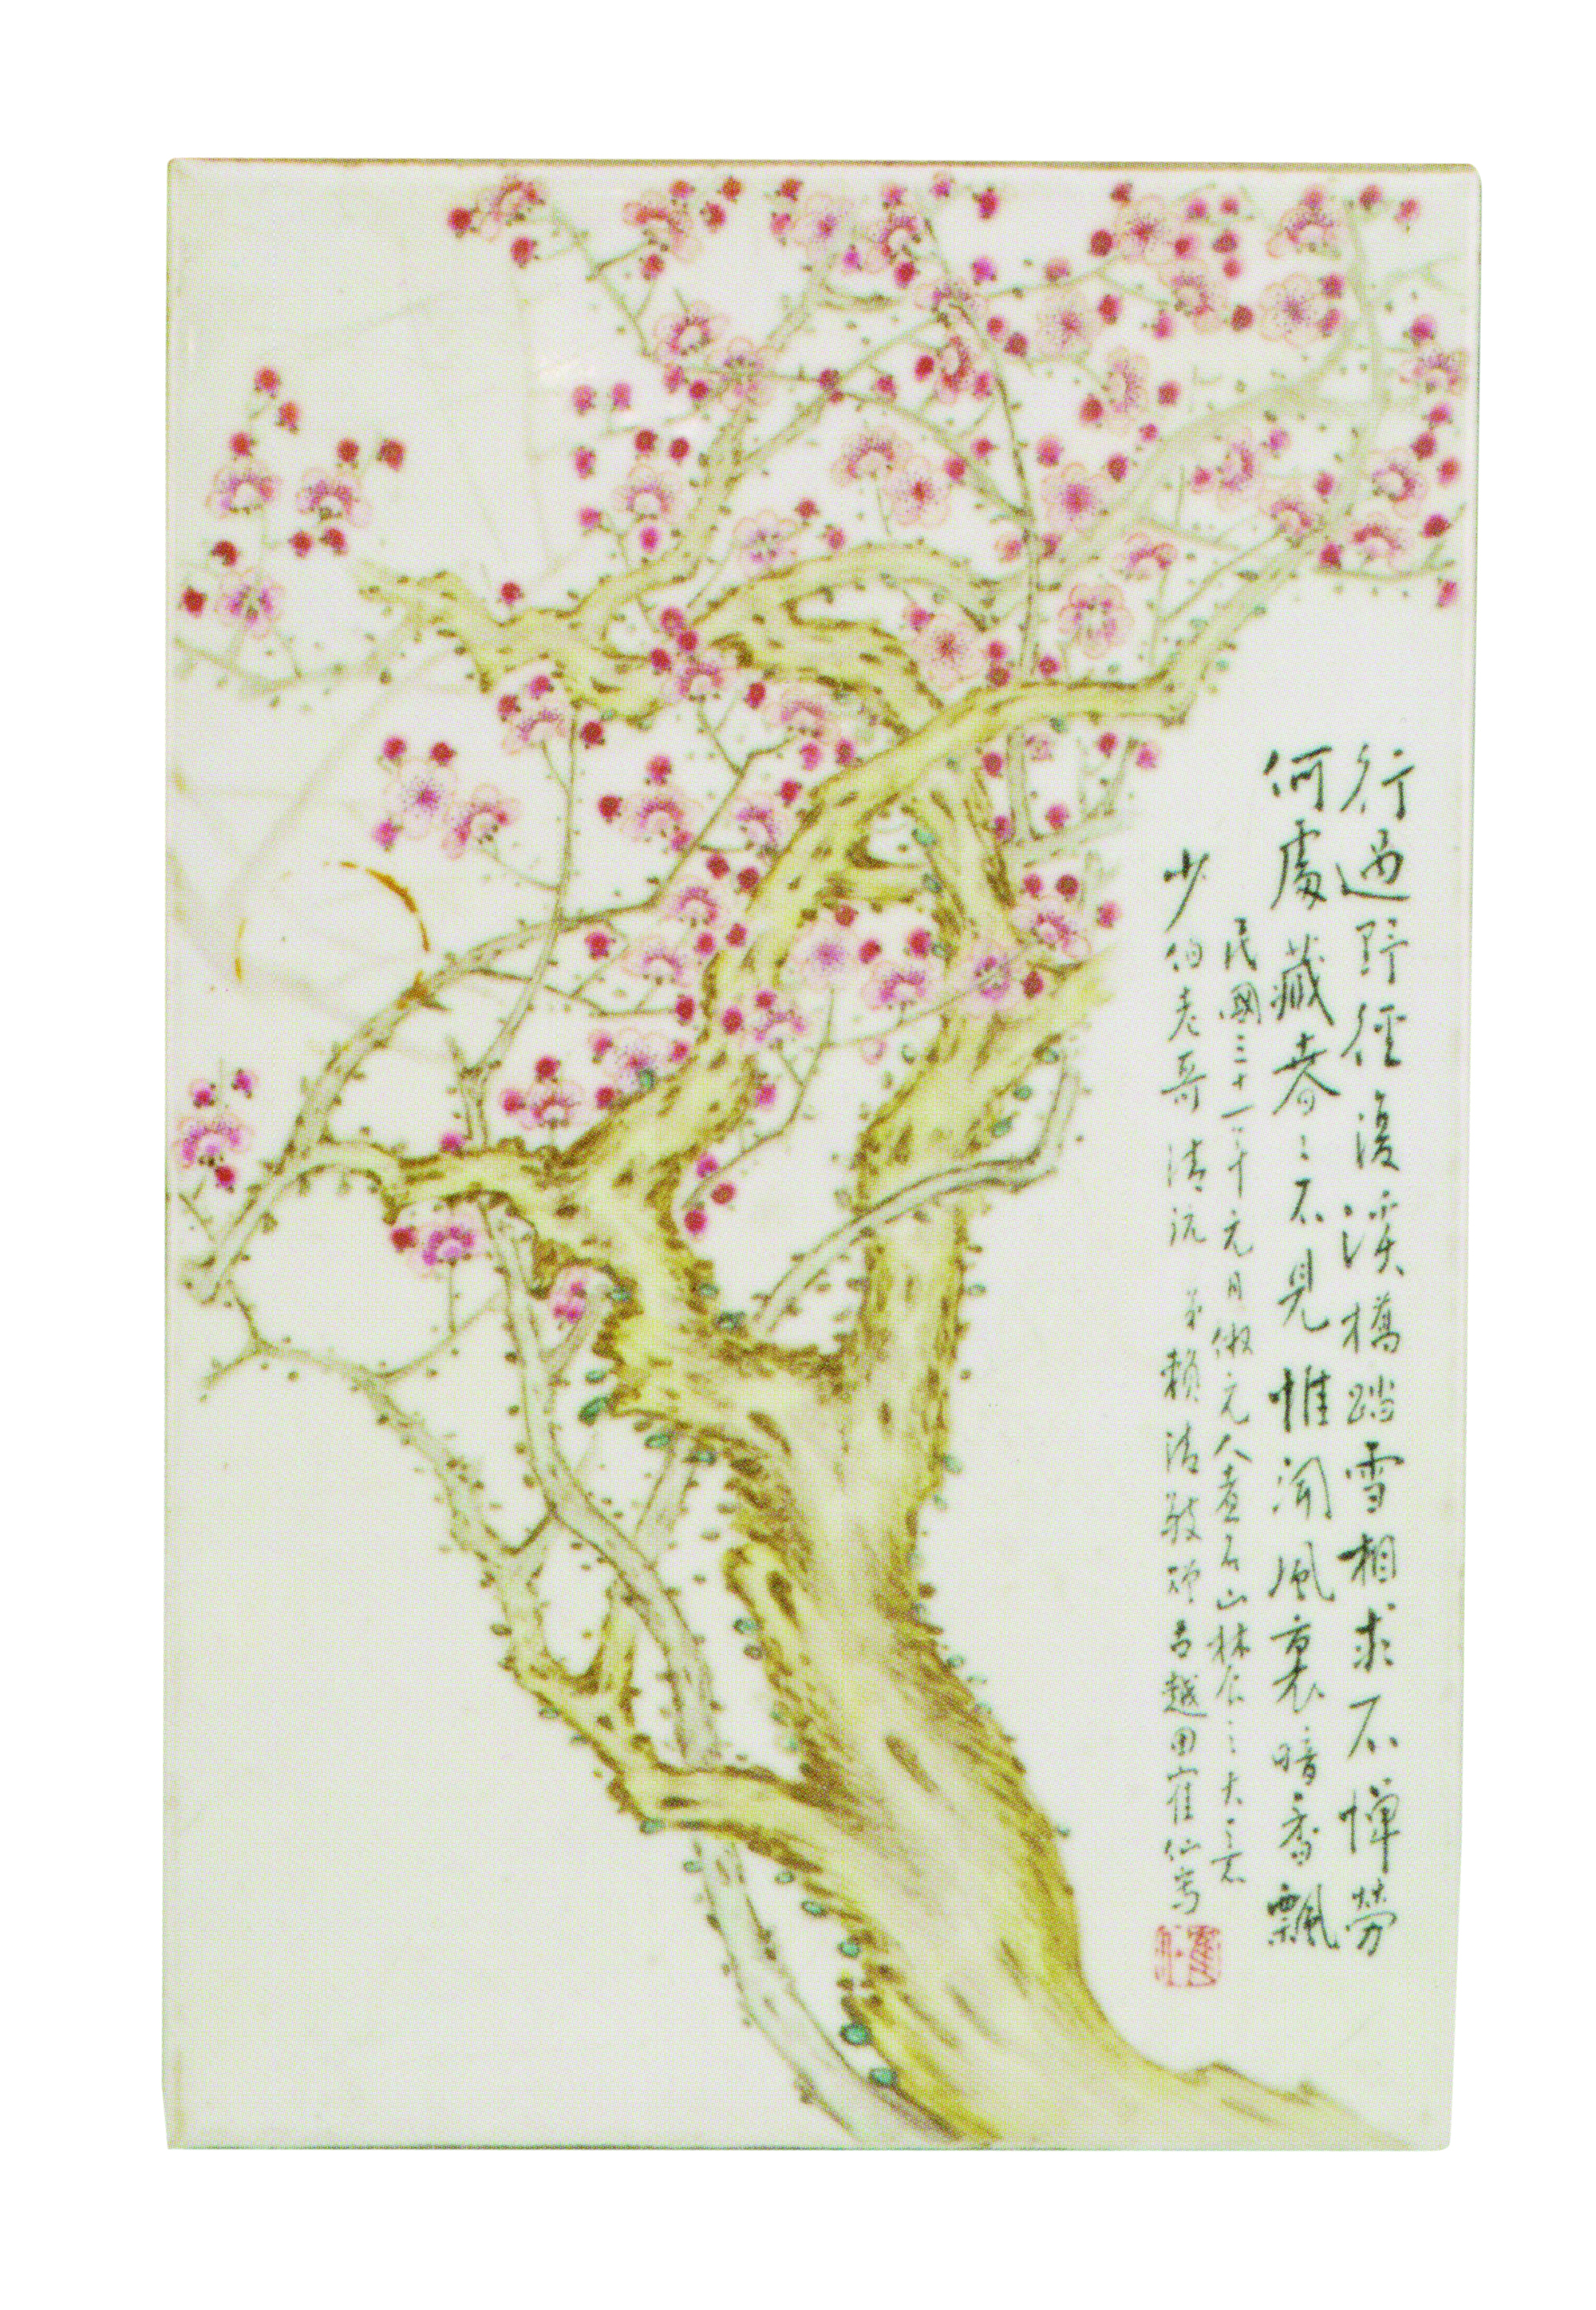 行過野徑復溪橋踏雪相求不憚勞
何處藏春〻不見惟聞風裏暗香飄
民國三十一年元月倣元人煮石山農〻之大意
少伯老哥清玩 弟賴清 古越田鶴仙寫